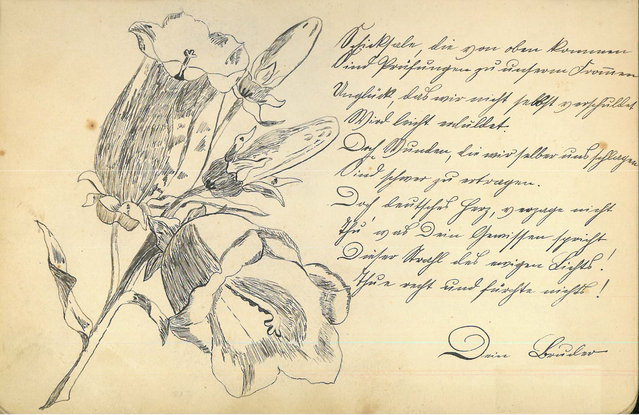 Schicksale, die von oben kommen
Sind Prüfungen zu unserm From̅en
Unglück, das wir nicht selbst verschuldet
Wird leicht erduldet.
Doch Wunden, die wir selber uns schlagen
Sind schwer zu ertragen.
Doch deutsches Herz, verzage nicht
Thu' was Dein Gewissen spricht
Dieser Strahl des ewigen Lichts!
Thue recht und fürchte nichts!
Dein Bruder